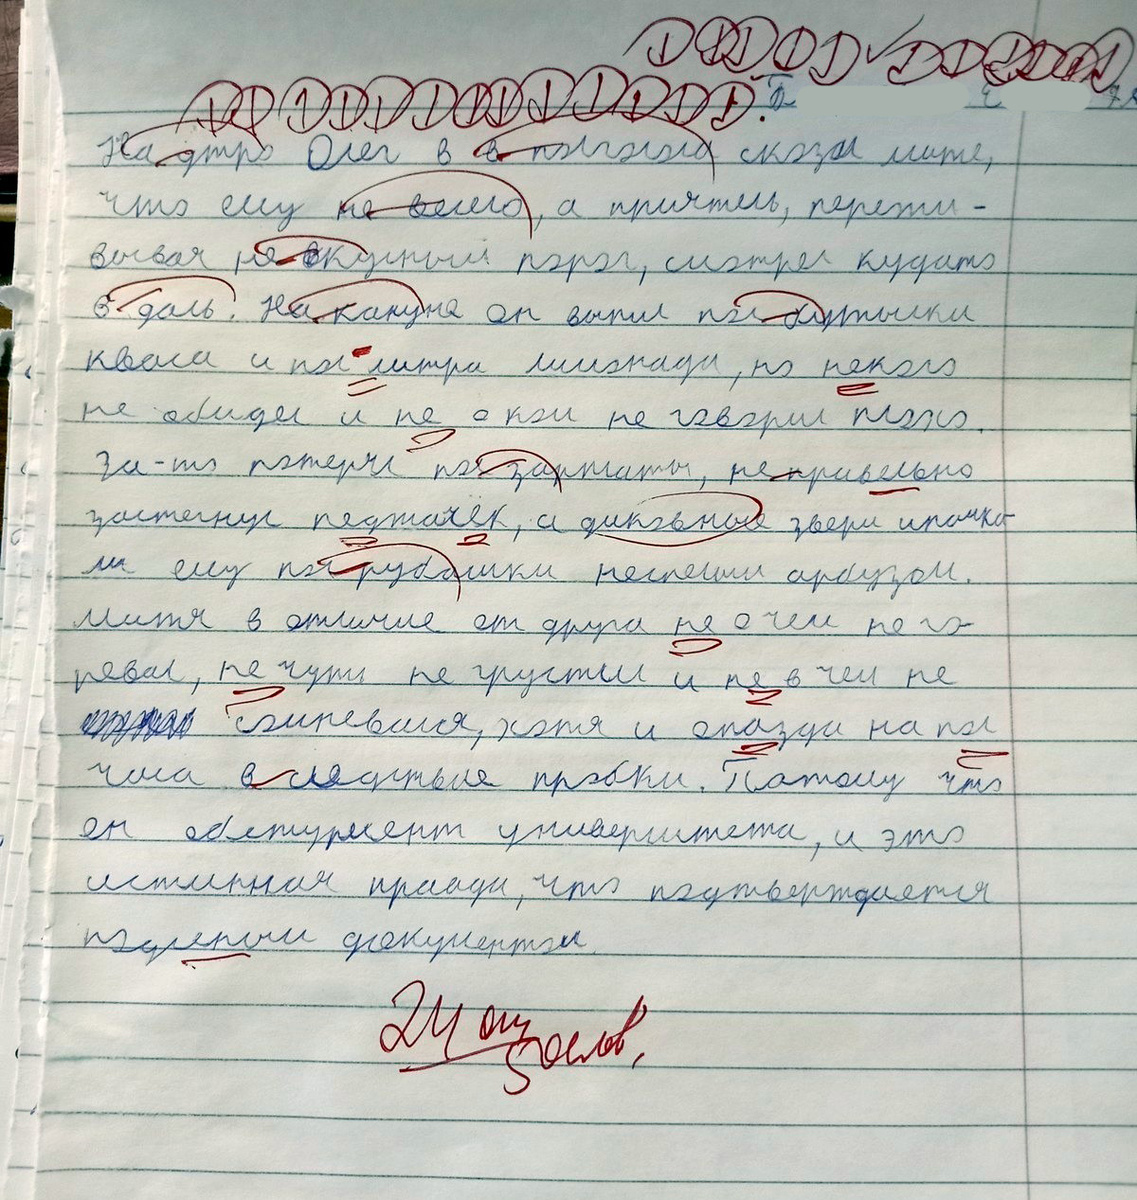 На дтро Олег в в полгоса сказал мате,
что ему не весело, а приятель, пережи-
вывая не вкусный пэрог, смотрел кудато
в даль. На кануне он выпил пол бутылки
кваса и пол литра лимонада, но некого
не обидел и не о ком не говорил плохо.
За-то потерял пол зарплаты, не правельно
застегнул педжачёк, а диковные звери испачка-
ли ему пол рубашки неспелым арбузом.
Митя в отличие от друга не о чем не го-
ревал, не чуть не грустил и не в чем не
сомневался, хотя и опаздал на пол
часа в следствие пробки. Потому что
он обетурмент университета, и это
истинная правда, что подтверждается
подленым документом.
24 ош
50 слов.